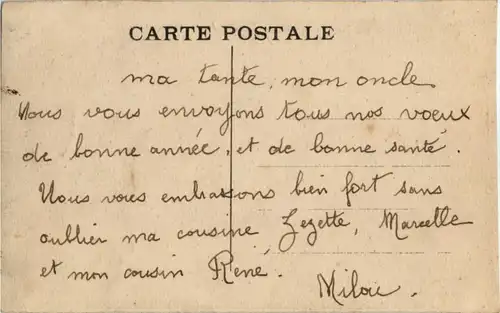 CARTE POSTALE
ma tante, mon oncle
Nous vous envoyons tous nos voeux
de bonne année, et de bonne santé.
Nous vous embrassons bien fort sans
oublier ma cousine Zezette, Marcelle
et mon cousin René.
Milou.